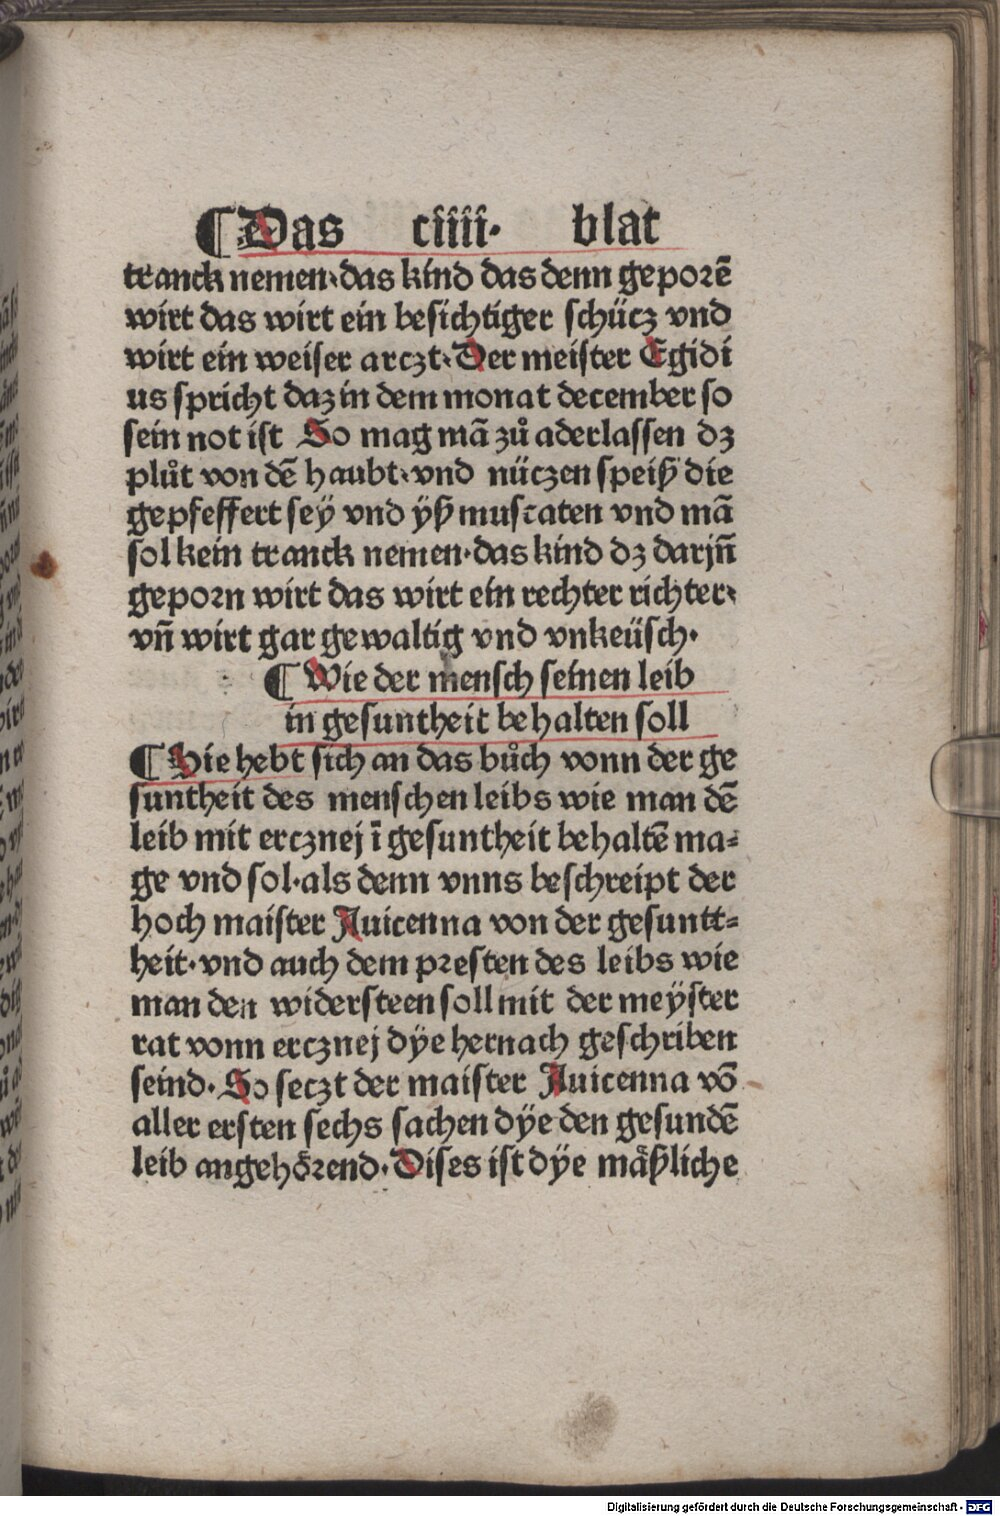 ¶Das ciiii· blat
tranck nemen·das kind das denn geporē
wirt das wirt ein besichtiger schücz vnd
wirt ein weiser arczt·Der meister Egidi
us spricht daz in dem monat december so
sein not ist So mag mā zů aderlassen dz
plůt von dē haubt·vnd nüczen speiß die
gepfeffert seÿ vnd ÿß muscaten vnd mā
sol kein tranck nemen·das kind dz darjn̄
geporn wirt das wirt ein rechter richter·
vn̄ wirt gar gewaltig vnd vnkeüsch·
¶ Wie der mensch seinen leib
in gesuntheit behalten soll
¶Hie hebt sich an das bůch vonn der ge
suntheit des menschen leibs wie man dē
leib mit ercznej ī gesuntheit behaltē ma⸗
ge vnd sol·als denn vnns beschreipt der
hoch maister Auicenna von der gesuntt⸗
heit·vnd auch dem presten des leibs wie
man den widersteen soll mit der meÿster
rat vonn ercznej dÿe hernach geschriben
seind·So seczt der maister Auicenna vō
aller ersten sechs sachen dÿe den gesundē
leib angehörend·Dises ist dÿe mäßliche
Digitalisierung gefördert durch die Deutsche Forschungsgemeinschaft - DFG